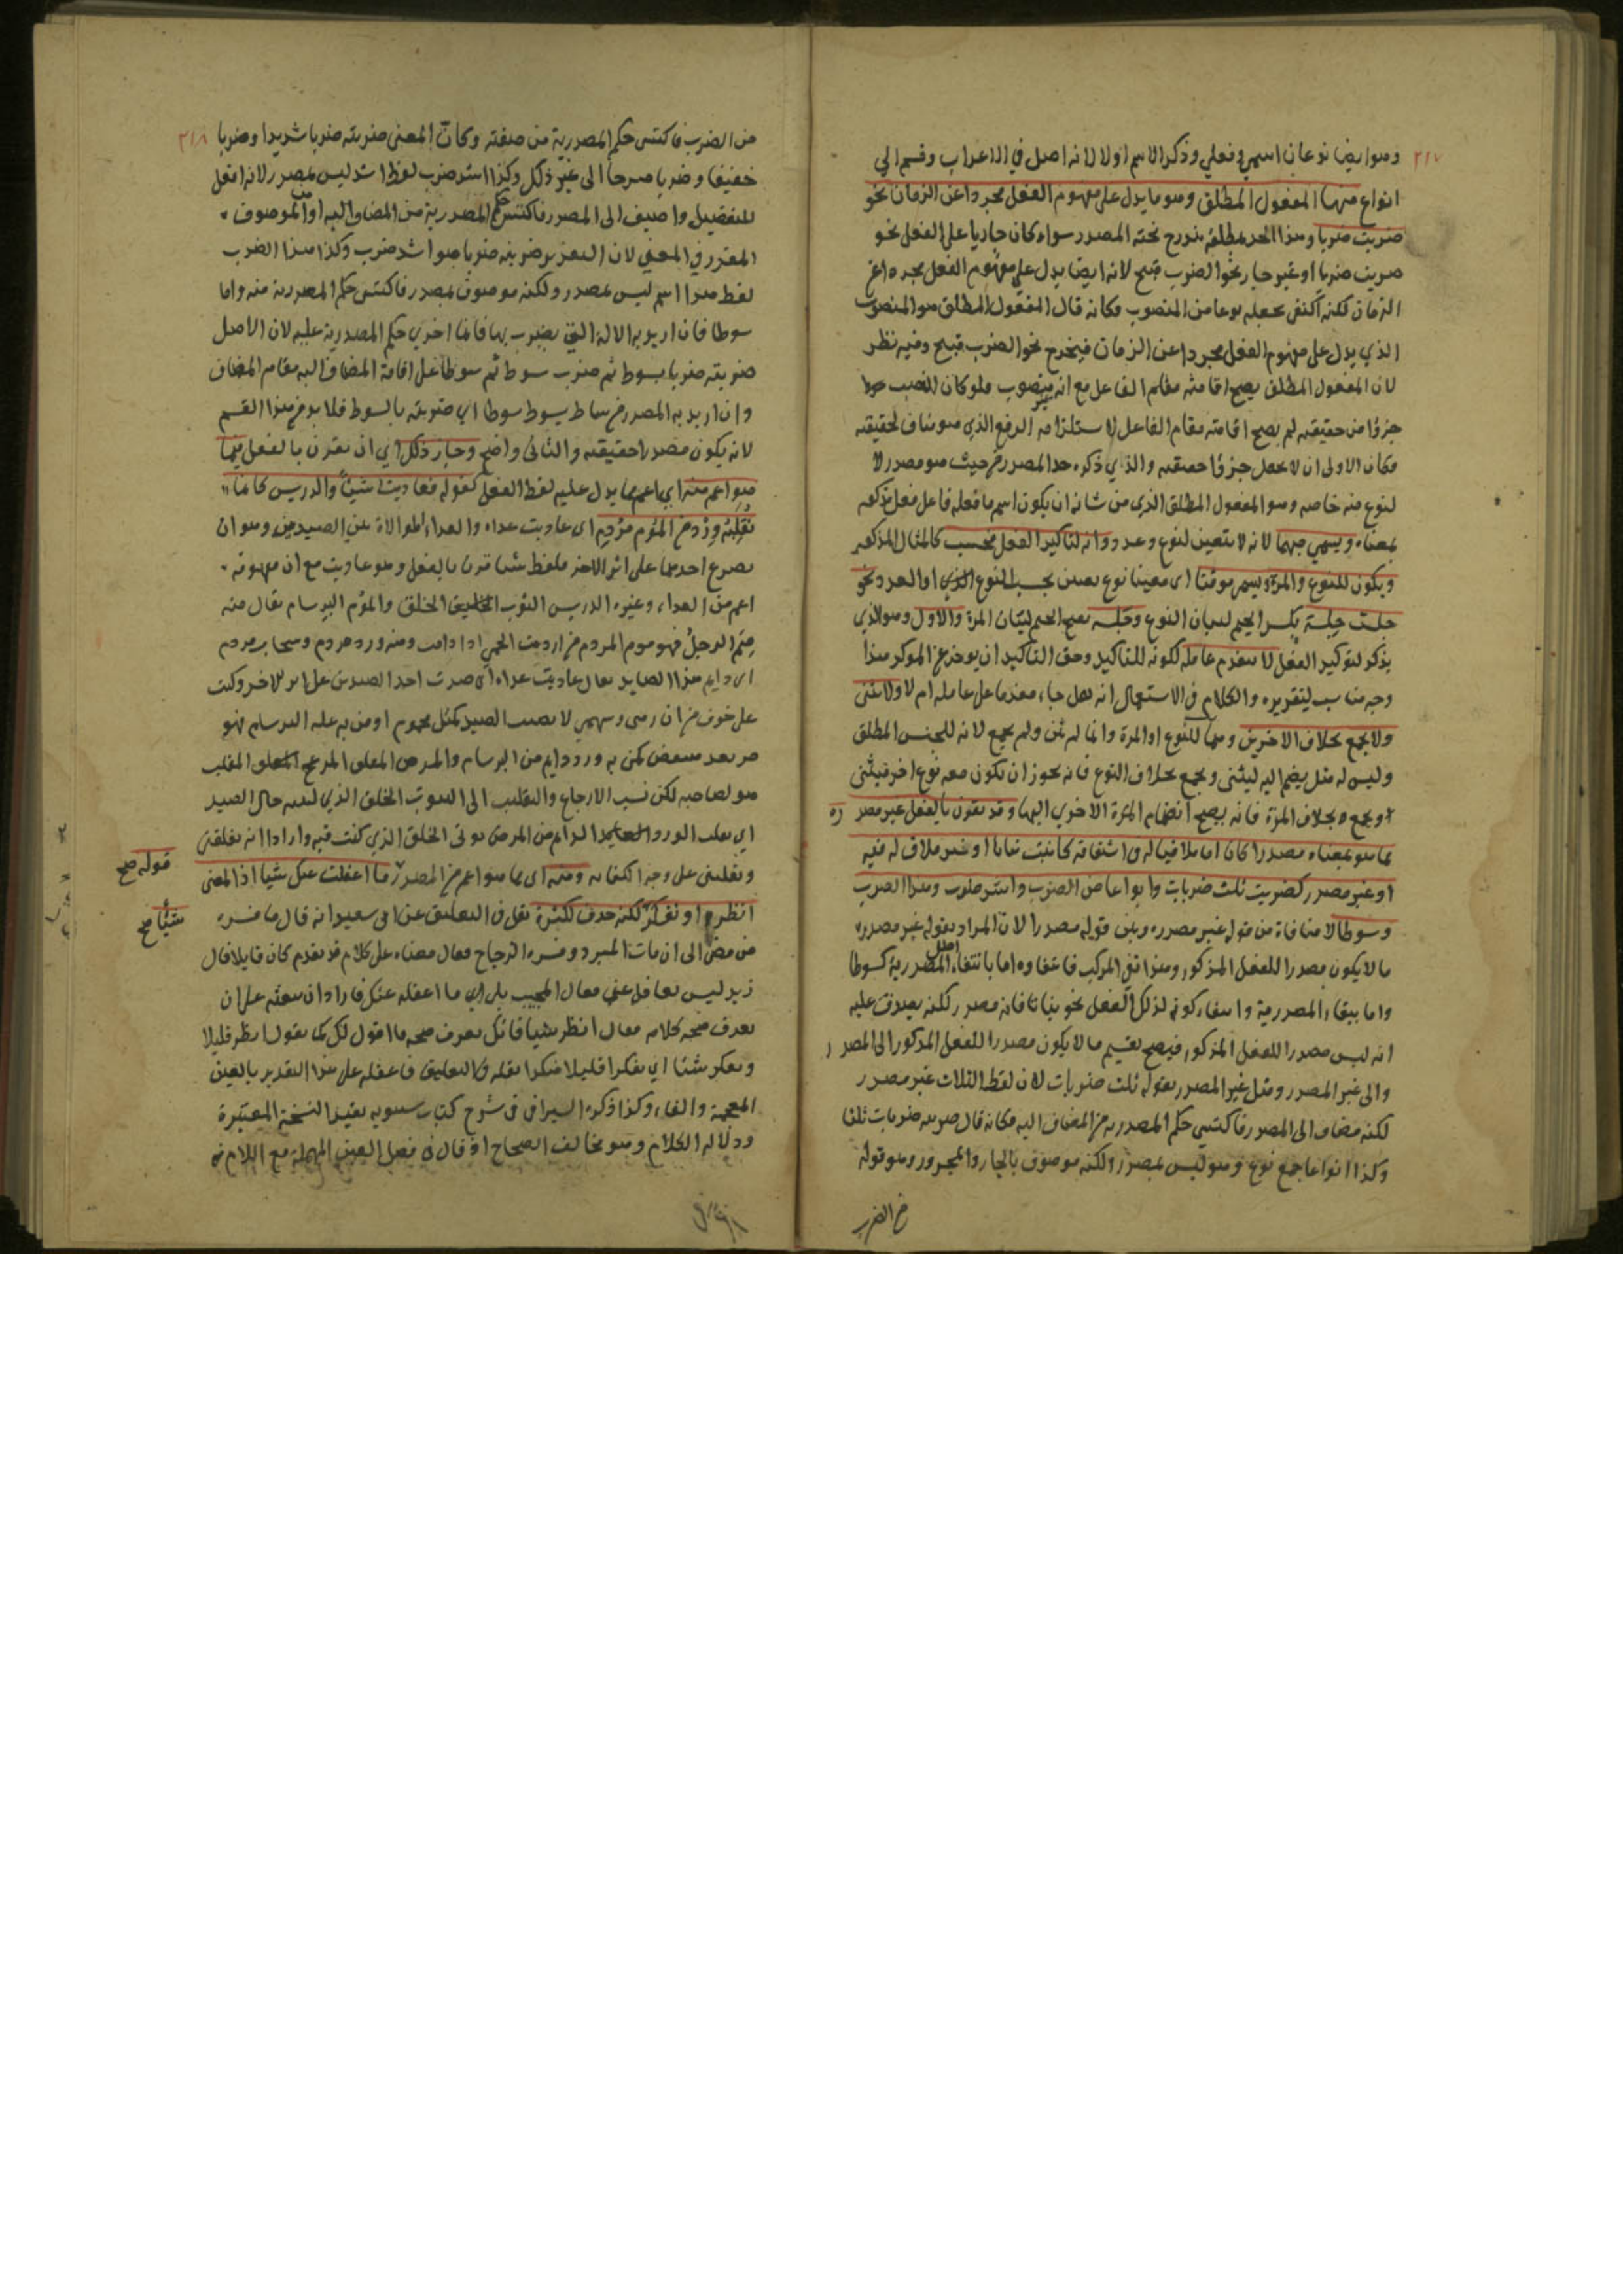 ٣١٧
وهو ايضا نوعان اسمي وفعلي وذكر الاسم اولا لانه اصل في الاعراب وقسم الي
انواع منها المفعول المطلق وهو ما يدل على مفهوم الفعل مجردا عن الزمان نحو
ضربت ضربا وهذا الحد مطلقه يندرج تحته المصدر سواء كان جاريا على الفعل نحو
ضربت ضربا او غير جار نحو الضرب قبيح لانه ايضا يدل على مفهوم الفعل مجردا عن
الزمان لكنه اكتفى بجعله نوعا من المنصوب فكانه قال المفعول المطلق هو المنصوب
الذي يدل على مفهوم الفعل مجردا عن الزمان فيخرج نحو الضرب قبيح وفيه نظر
لان المفعول المطلق يصح اقامته مقام الفاعل مع انه غير منصوب فلو كان النصب
جزؤا من حقيقته لم يصح اقامته مقام الفاعل لاستلزامه الرفع الذي هو مناف لحقيقته
فكان الاولى ان لا يجعل جزؤا حقيقته والذي ذكره حد المصدر من حيث هو مصدر لا
لنوع منه خاصه وهو المفعول المطلق الذي من شانه ان يكون اسم ما فعله فاعل فعل مذكور
بمعناه ويسمي مبهما لانه لا يتعين لنوع وعدد وانه لتاكيد الفعل فحسب كالمثال المذكور
ويكون للنوع والمرة ويسمى موقتا اى معينا نوع تعين بحسب النوع الذي او العدد نحو
جلست جِلسة بكسر الجيم لبيان النوع وجَلسة بفتح الجيم لبيان المرة والاول وهو الذي
يذكر لتوكيد الفعل لا يتقدم عامله لكونه للتاكيد وحق التاكيد ان يوخر عن الموكد هذا
وجه مناسب لتقريره والكلام في الاستعمال انه هل جاء مقدما على عامله ام لا ولا يثنى
ولا يجمع بخلاف الاخرين وهما للنوع او المرة وانما لم يثن ولم يجمع لانه للجنس المطلق
وليس له مثل يضم اليه ليثنى ويجمع بخلاف النوع فانه يجوز ان يكون معه نوع اخر فيثنى
او يجمع وبخلاف المرة فانه يصح انضمام المرة الاخري اليها وقد يقرن بالفعل غير مصدره
مما هو بمعناه مصدرا كان اما ملاقيا له في اشتقاقه كانبت نباتا او غير ملاق له فيه
او غير مصدر كضربت ثلث ضربات وانواعا من الضرب واشد ضرب وهذا الضرب
وسوطا لا منافاة من قوله غير مصدره وبين قوله مصدرا لان المراد بقوله غير مصدره
ما لا يكون مصدرا للفعل المذكور وهذا نفي المركب فانتفاؤه اما بانتفاء اصل المصدرية كسوطا
واما ببقاء المصدرية وانتفاء كونه لذلك الفعل نحو نباتا فانه مصدر لكنه يصدق عليه
انه ليس مصدرا للفعل المذكور فيصح تقسيم ما لا يكون مصدرا للفعل المذكور الى المصدر
والى غير المصدر ومثل غير المصدر بقوله ثلث ضربات لان لفظ الثلاث غير مصدر
لكنه مضاف الى المصدر فاكتسي حكم المصدرية من المضاف اليه فكانه قال ضربته ضربات ثلثا
وكذا انواعا جمع نوع وهو ليس بمصدر ولكنه موصوف بالجار والمجرور وهو قوله
من الضرب
٣١٨
من الضرب فاكتسى حكم المصدرية من صفته وكان المعنى ضربته ضربا شديدا وضربا
خفيفا وضربا مبرحا الى غير ذلك وكذا اشد ضرب لفظ اشد ليس بمصدر لانه افعل
للتفضيل واضيف الى المصدر فاكتسى حكم المصدرية من المضاف اليه او من الموصوف
المقدر في المعني لان التقدير ضربته ضربا هو اشد ضرب وكذا هذا الضرب
لفظ هذا اسم ليس بمصدر ولكنه موصوف بمصدر فاكتسى حكم المصدرية منه واما
سوطا فان اريد به الالة التي يضرب بها فانما اجري حكم المصدرية عليه لان الاصل
ضربته ضربا بسوط ثم ضرب سوط ثم سوطا على اقامة المضاف اليه مقام المضاف
وان اريد به المصدر من ساط يسوط سوطا اي ضربته بالسوط فلا يرد من هذا القسم
لانه يكون مصدرا حقيقته والثاني واضح وجاز ذلك اي ان يقرن بالفعل فيما
هو اعم منه اي اعم مما يدل عليه لفظ الفعل كقوله فعاديت شيئا والدريس كانما
تُقَلِّبُه وِرْدٌ من الموم مُرْدِم اى عاديت عداء والعداء الموالاة بين الصيدين وهو ان
يصرع احدهما على اثر الاخر فلفظ شيئا قرن بالفعل وهو عاديت مع ان مفهومه
اعم من العداء وغيره الدريس الثوب الخلق والموم البرسام يقال منه
ميم الرجل فهو موم المردم من اردمت الحمى اذا دامت ومنه ورد مردم وسحاب مردم
اى دايم هذا الصايد يقال عاديت عداء اى صرت احد الصيدين على اثر الاخر وكنت
على خوف من ان رمى وسهمي لا يصيب الصيد كمثل محموم او من به علة البرسام فهو
هو لصاحبه لكن نسب الارجاع والتقليب الى الثوب الخلق الذي لبسه حال الصيد
وتقلبني على وجه الكناية ومنه اى مما هو اعم من المصدر قوله صح ما اغفلت عنك شيئا اذ المعنى
انظر او تفكر شيئًا صح لكنه حذف لكثرة نقل في التعليق عن ابي سعيد انه قال ما فسره
من مضى الى ان مات المبرد وفسره الزجاج فقال معناه على كلام قد تقدم كان قايلا قال
زيد ليس بغافل عني فقال المجيب بلى اي ما اغفله عنك فاراد ان يبعثه على ان
يعرف صحة كلامه فقال انظر شيئا فانك تعرف صحة ما اقول لك كما تقول انظر قليلا
وتفكر شيئا اي تفكرا قليلا هكذا نقله في التعليق فاغفله على هذا التقدير بالغين
المعجمة والفاء وكذا ذكره السيرافي في شرح كتاب سيبويه بقيد النسخة المعتبرة
ودلالة الكلام وهو مخالف الصحاح اذ قال في فصل العين المهملة مع اللام